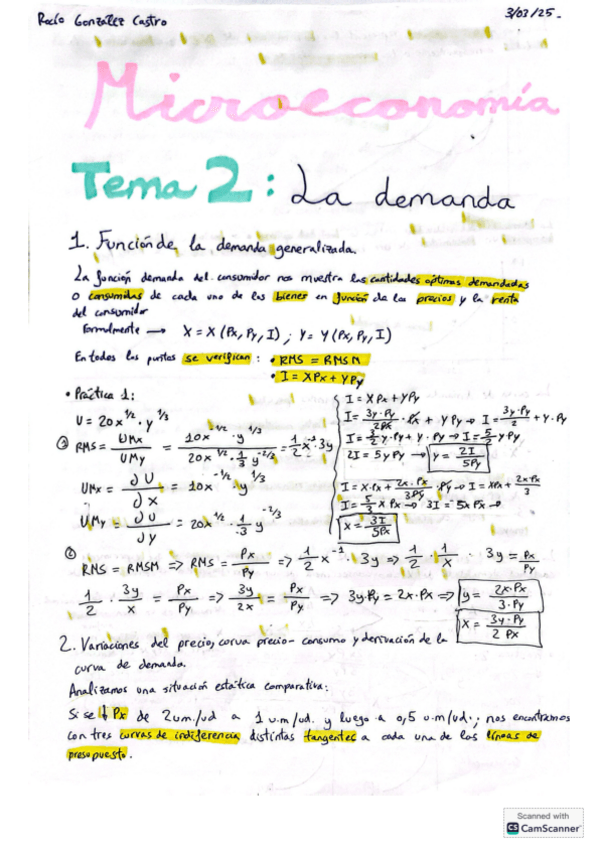 Rocío González Castro
3/03/25.
Microeconomía
Tema 2: La demanda
1. Función de la demanda generalizada.
La función demanda del consumidor nos muestra las cantidades óptimas demandadas
o consumidas de cada uno de los bienes en función de los precios y la renta
del consumidor
Formalmente → X = X (Px, Py, I) ; Y = Y (Px, Py, I)
En todos los puntos se verifican : • RMS = RMSM
• I = XPx + YPy
• Práctica 1:
U = 20x^1/2 · y^1/3
① RMS = UMx / UMy = 10x^-1/2 · y^1/3 / 20x^1/2 · 1/3 y^-2/3 = 1/2 x^-1 · 3y
UMx = ∂U / ∂x = 10x^-1/2 · y^1/3
UMy = ∂U / ∂y = 20x^1/2 · 1/3 y^-2/3
I = XPx + YPy
I = 3y·Py / 2Px · Px + YPy → I = 3y·Py / 2 + Y·Py
I = 3/2 y·Py + Y·Py → I = 5/2 yPy
2I = 5yPy → y = 2I / 5Py
I = X·Px + 2x·Px / 3Py · Py → I = XPx + 2xPx / 3
I = 5/3 X Px → 3I = 5x Px →
x = 3I / 5Px
② RMS = RMSM => RMS = Px / Py => 1/2 x^-1 · 3y => 1/2 · 1/x · 3y = Px / Py
1/2 · 3y / x = Px / Py => 3y / 2x = Px / Py => 3y·Py = 2x·Px => y = 2x·Px / 3·Py
x = 3y·Py / 2Px
2. Variaciones del precio, curva precio-consumo y derivación de la
curva de demanda.
Analizamos una situación estática comparativa:
Si se ↓ Px de 2um./ud a 1 u.m/ud. y luego a 0,5 u.m/ud.; nos encontramos
con tres curvas de indiferencia distintas tangentes a cada una de las líneas de
presupuesto.
Scanned with
CS CamScanner